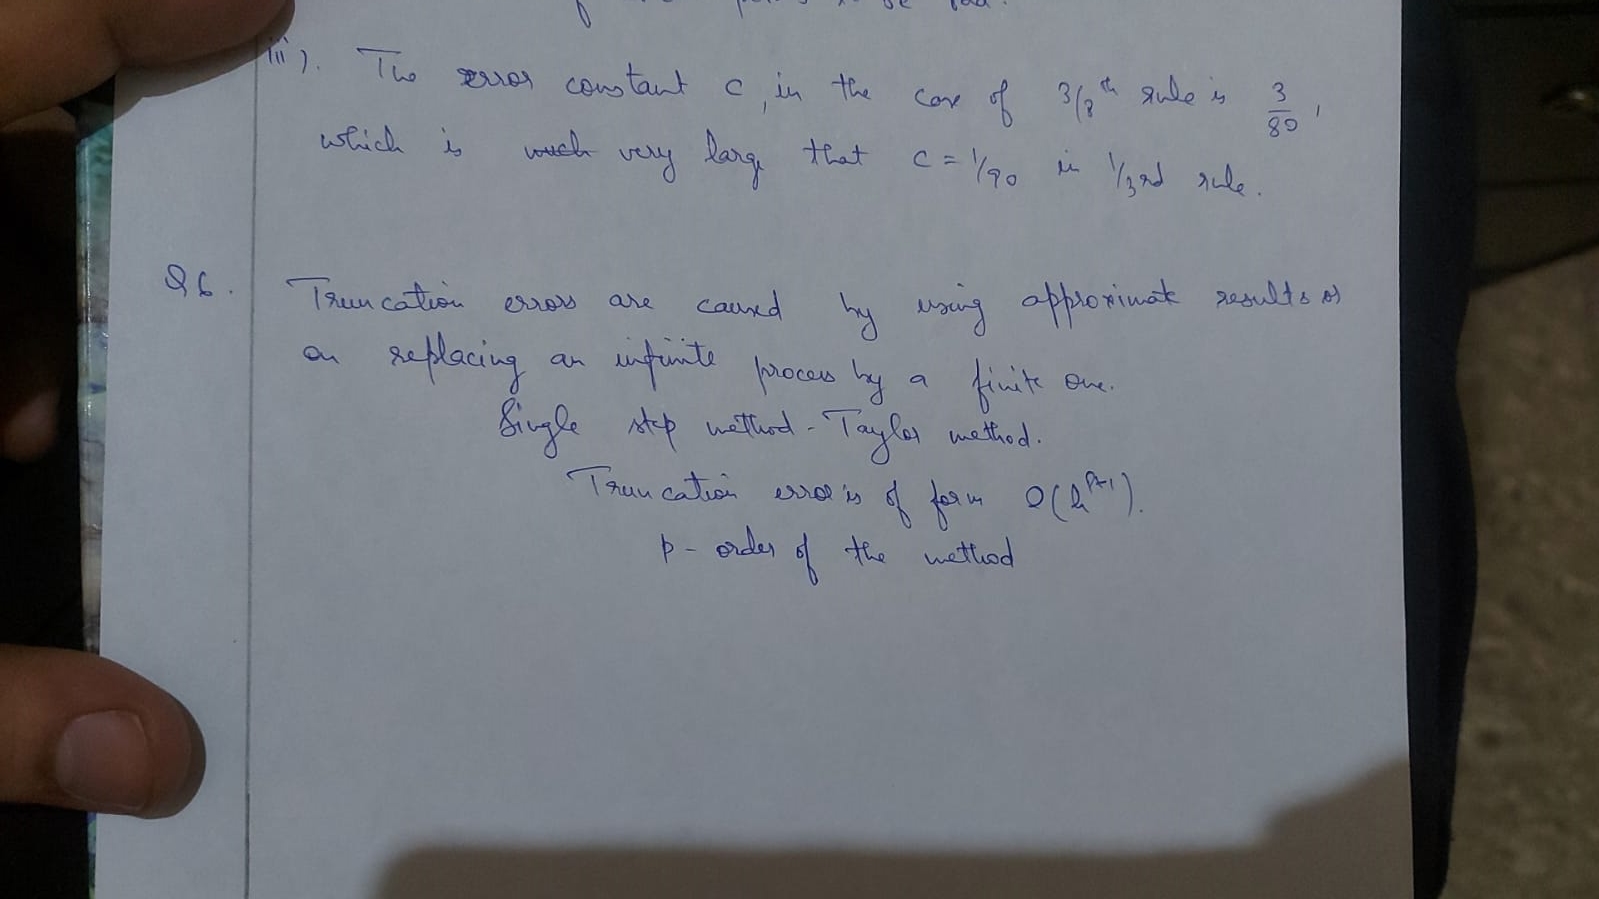 iii). The error constant c, in the case of 3/8th rule is 3/80,
which is much very large that c = 1/90 in 1/3rd rule.
Q6. Truncation errors are caused by using approximate results or
on replacing an infinite process by a finite one.
Single step method - Taylor method.
Truncation error is of form O(h^{p+1}).
p - order of the method